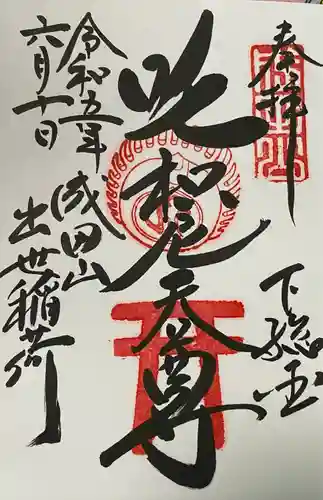 奉拝
下総国
吒枳尼天尊
成田山
出世稲荷
令和五年
六月十日